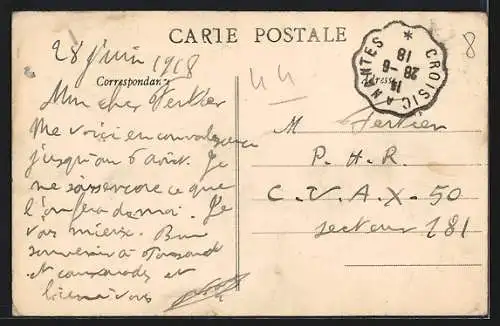 CARTE POSTALE
28 juin 1918
Correspondance
Mon cher Fertier
Me voici en convalescence
jusqu'au 6 août. Je
ne sais encore ce que
l'on fera de moi. Je
vais mieux. Bon
souvenir à
et camarades et
vous
44
8
CROISIC A NANTES
14
28-6
18
Adresse
M Fertier
P. H. R.
C. V. A. X - 50
secteur 181